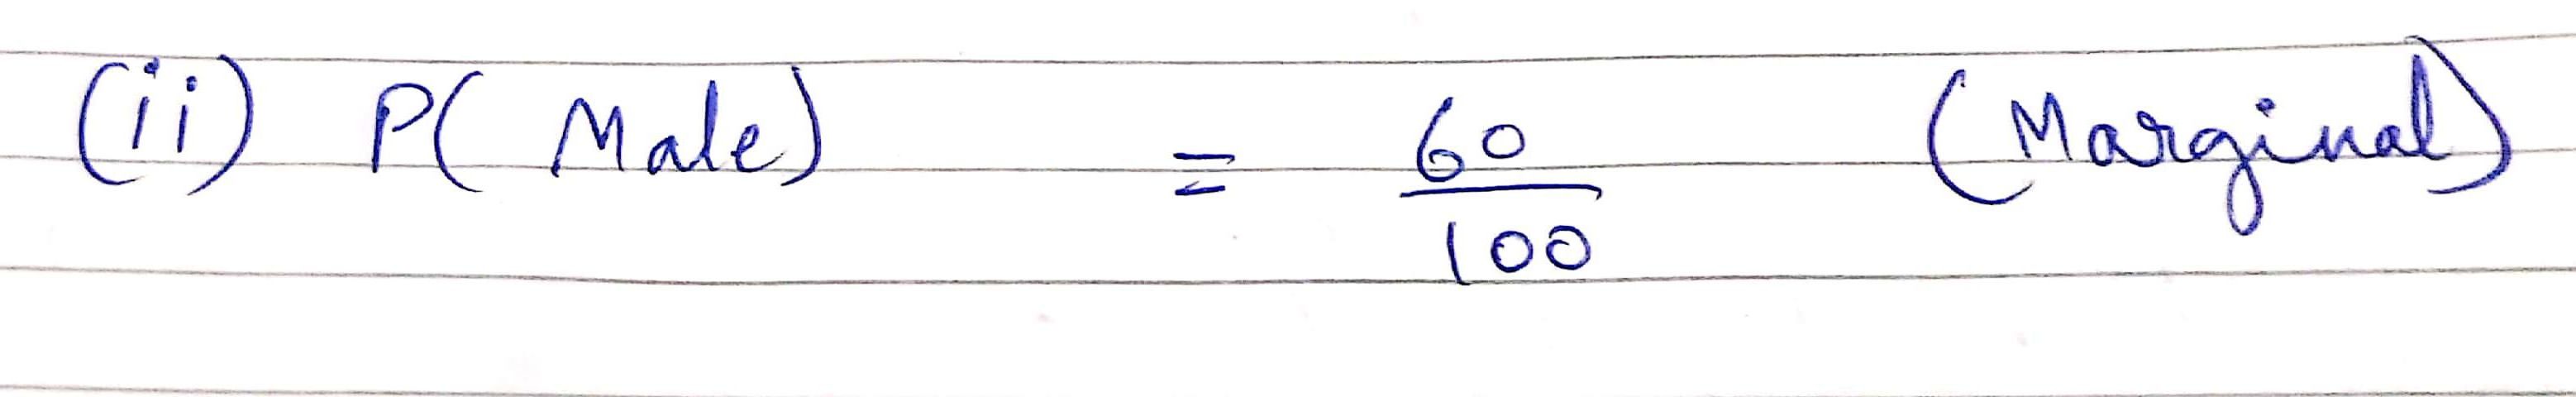 (ii) P( Male) = 60/100 (Marginal)